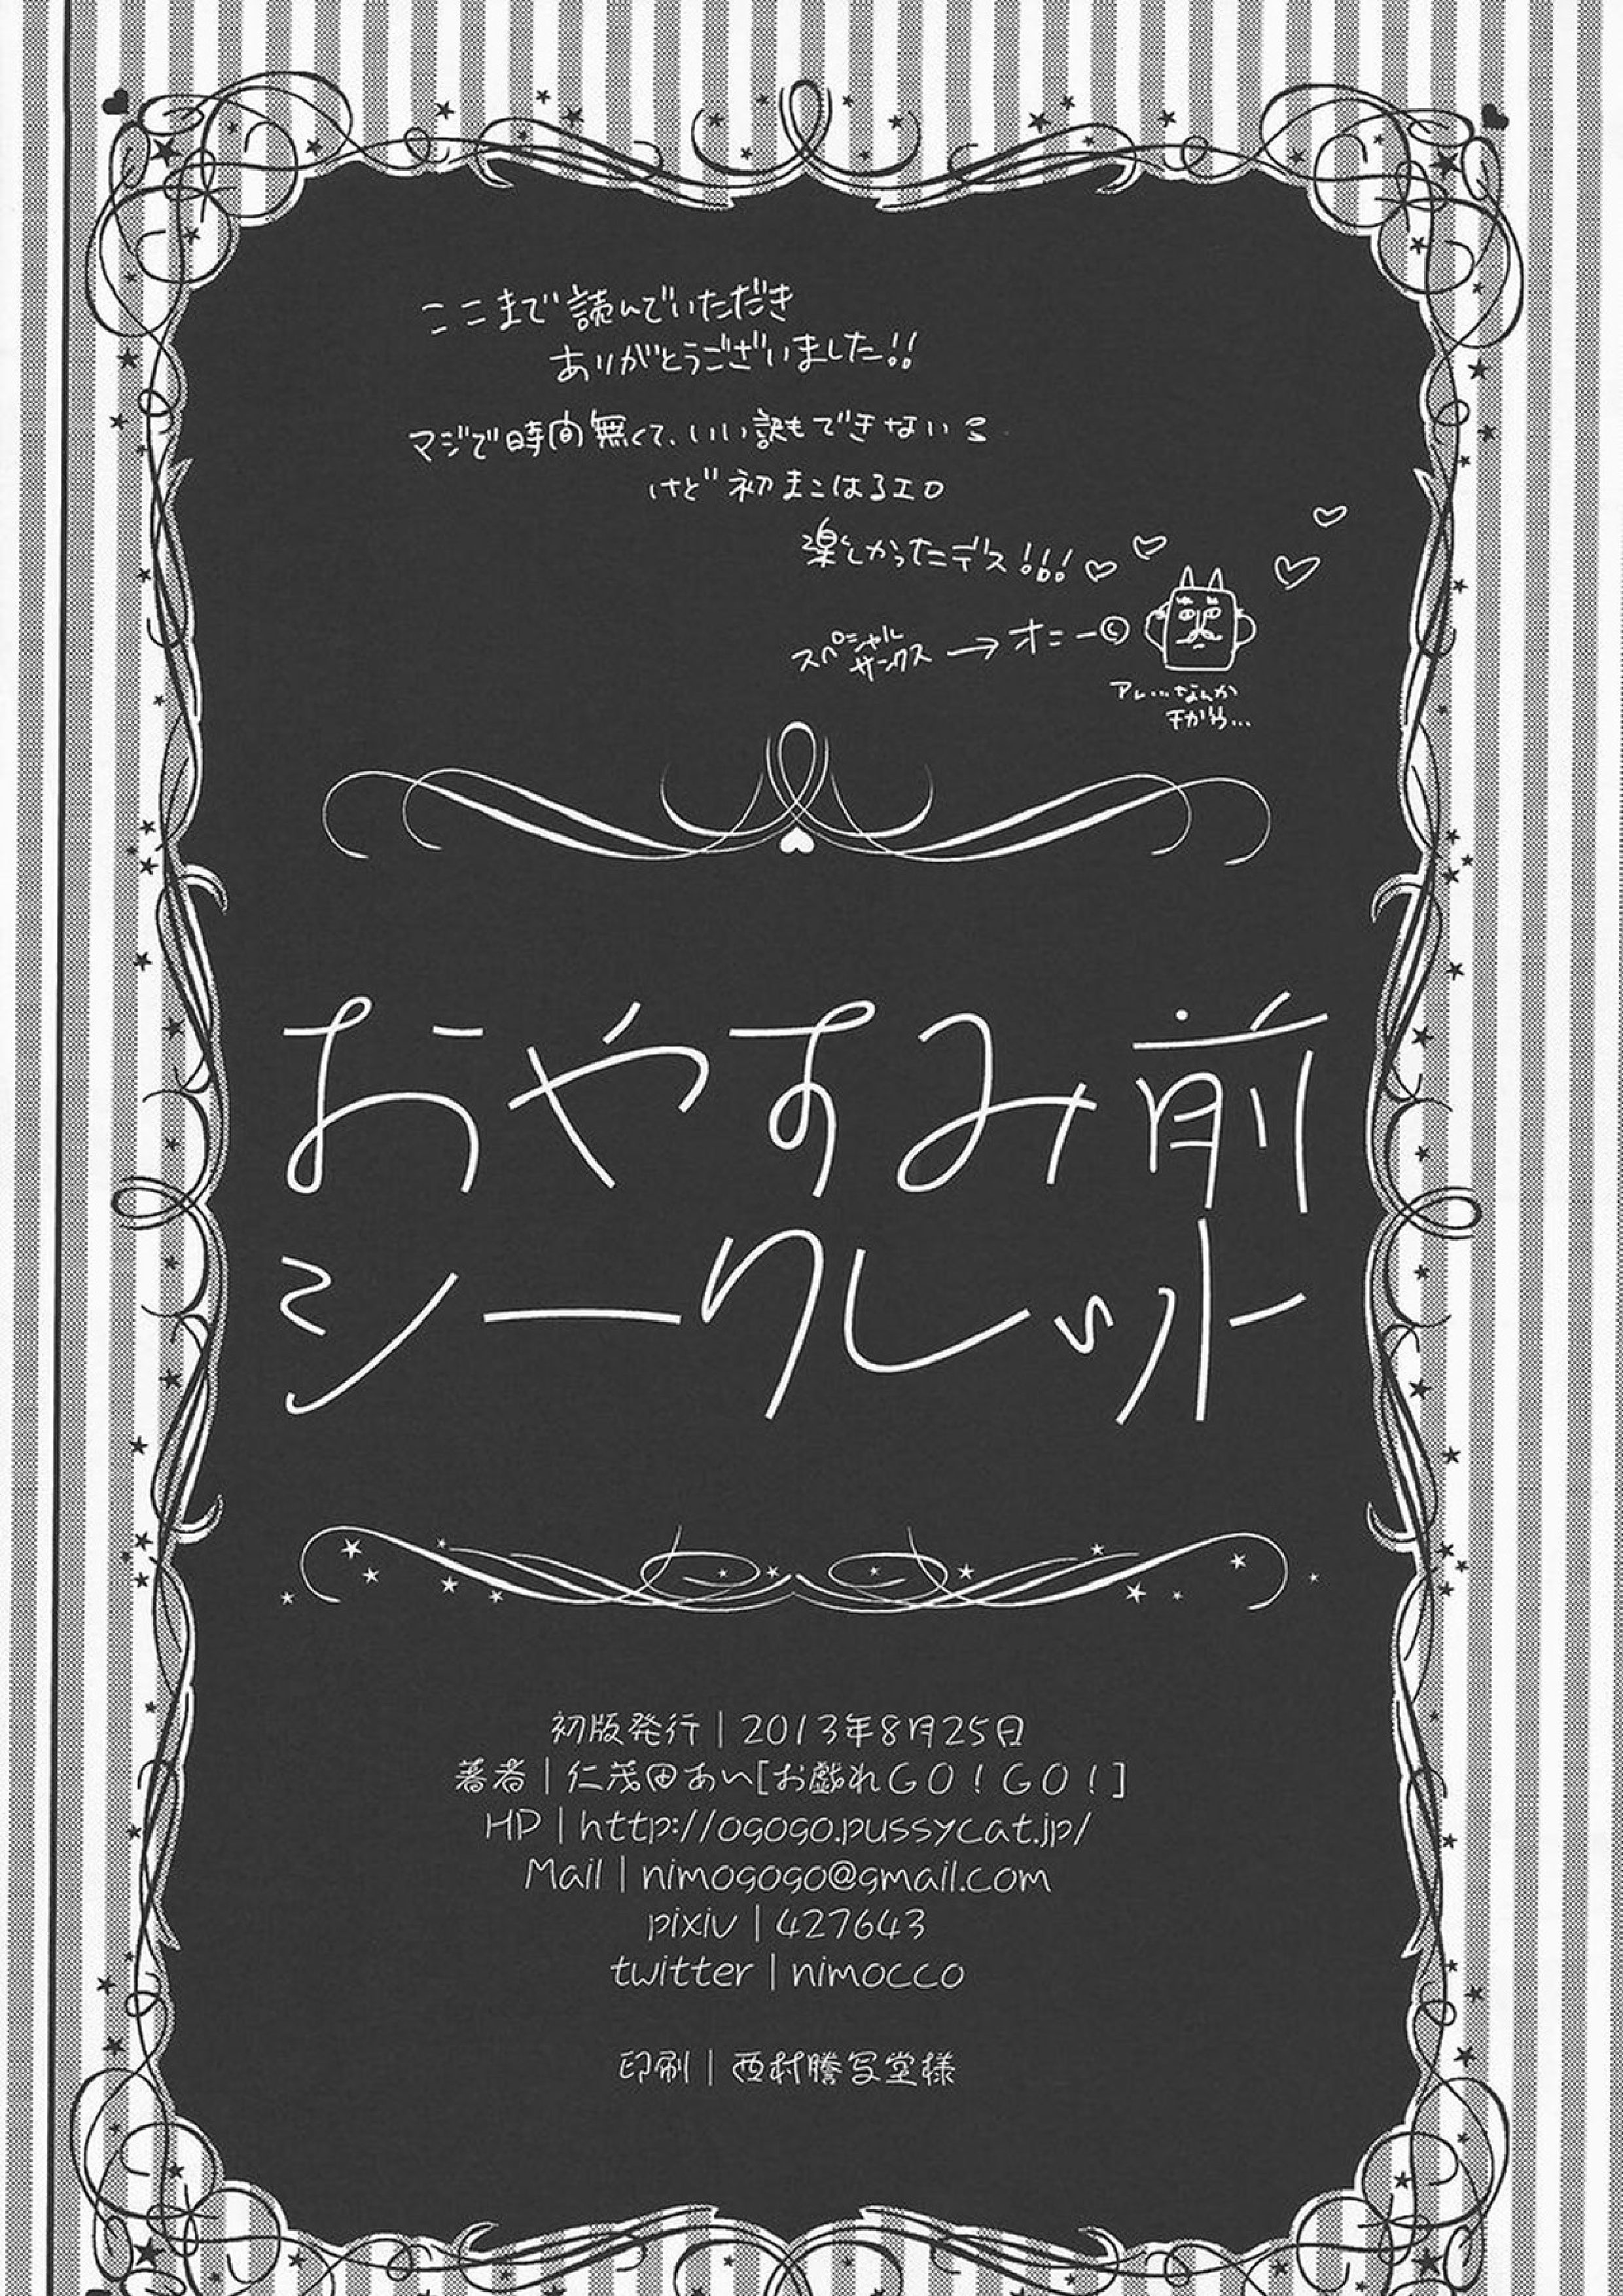 ここまで読んでいただき
ありがとうございました!!
マジで時間無くて、いい訳もできない
けど 初まこはるエロ
楽しかったデス!!!♡
スペシャル
サンクス → オニー©
アレ…なんか
チガウ…
おやすみ前
シークレット
初版発行|2013年8月25日
著者|仁茂田あい[お戯れGO！GO！]
HP|http://ogogo.pussycat.jp/
Mail|nimogogo@gmail.com
pixiv|427643
twitter|nimocco
印刷|西村謄写堂様